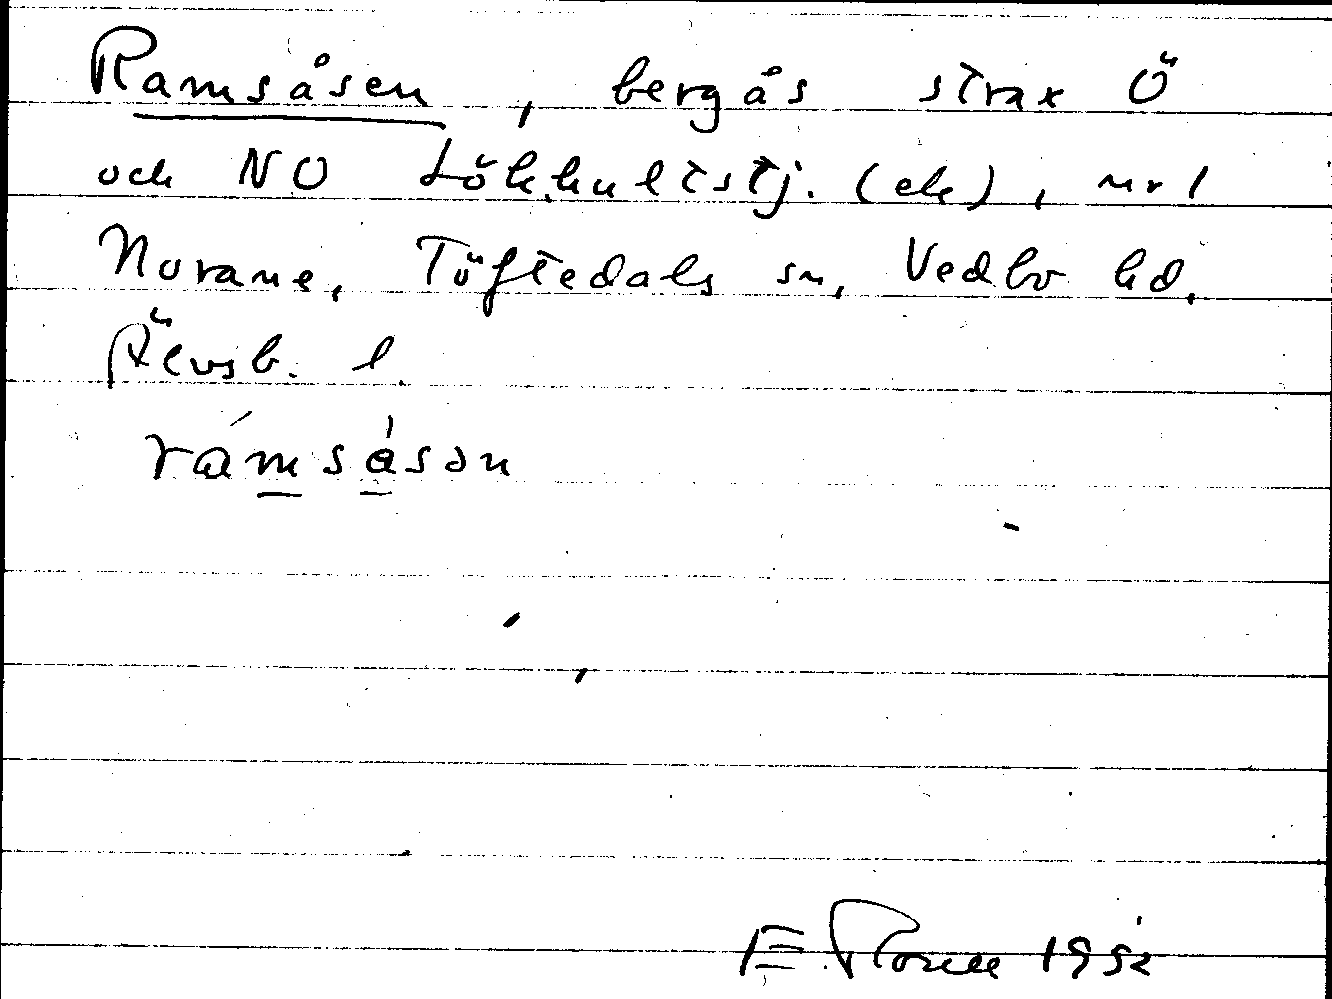 Ramsåsen, bergås strax Ö
och NO Lökhultstj. (ek), nr 1
Norane, Töftedals sn, Vedbo hd,
Älvsb. l.
rámsåsən
E. 1952